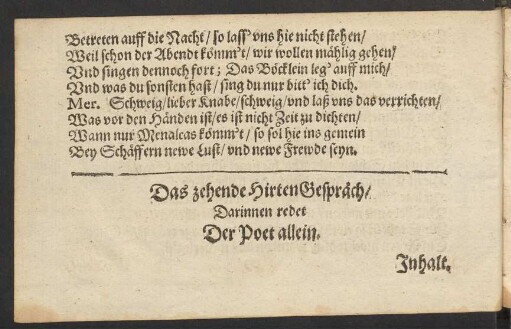 Betreten auff die Nacht/ so lass' vns hie nicht stehen/
Weil schon der Abendt kömm't/ wir wollen mählig gehen/
Vnd singen dennoch fort; Das Böcklein leg' auff mich/
Vnd was du sonsten hast/ sing du nur bitt' ich dich.
Mer. Schweig/ lieber Knabe/ schweig/ vnd laß vns das verrichten/
Was vor den Händen ist/ es ist nicht Zeit zu dichten/
Wann nur Menalcas kömm't/ so sol hie ins gemein
Bey Schäffern newe Lust/ vnd newe Frewde seyn.
Das zehende HirtenGespräch/
Darinnen redet
Der Poet allein.
Inhalt.